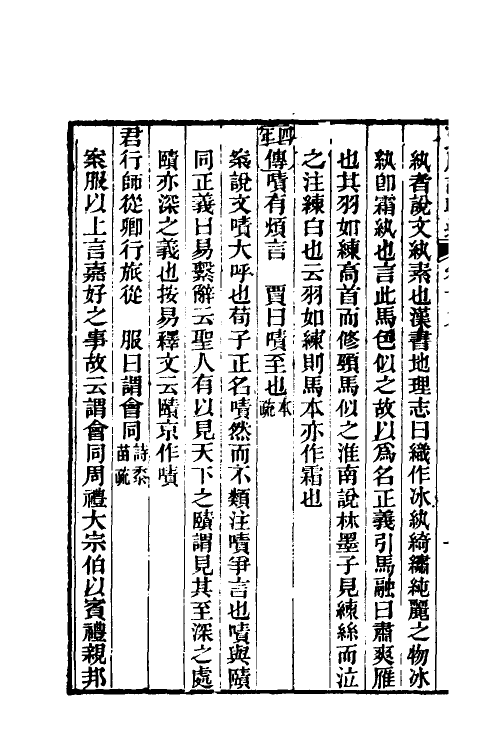 紈者說文紈素也漢書地理志曰織作冰紈綺繡純麗之物冰
紈卽霜紈也言此馬色似之故以爲名正義引馬融曰肅爽雁
也其羽如練高首而修頸馬似之淮南說林墨子見練絲而泣
之注練白也云羽如練則馬本亦作霜也
四年傳嘖有煩言　賈曰嘖至也本疏
案說文嘖大呼也荀子正名嘖然而不類注嘖爭言也嘖與賾
同正義曰易繫辭云聖人有以見天下之賾謂見其至深之處
賾亦深之義也按易釋文云賾京作嘖
君行師從卿行旅從　服曰謂會同詩黍苗疏
案服以上言嘉好之事故云謂會同周禮大宗伯以賓禮親邦